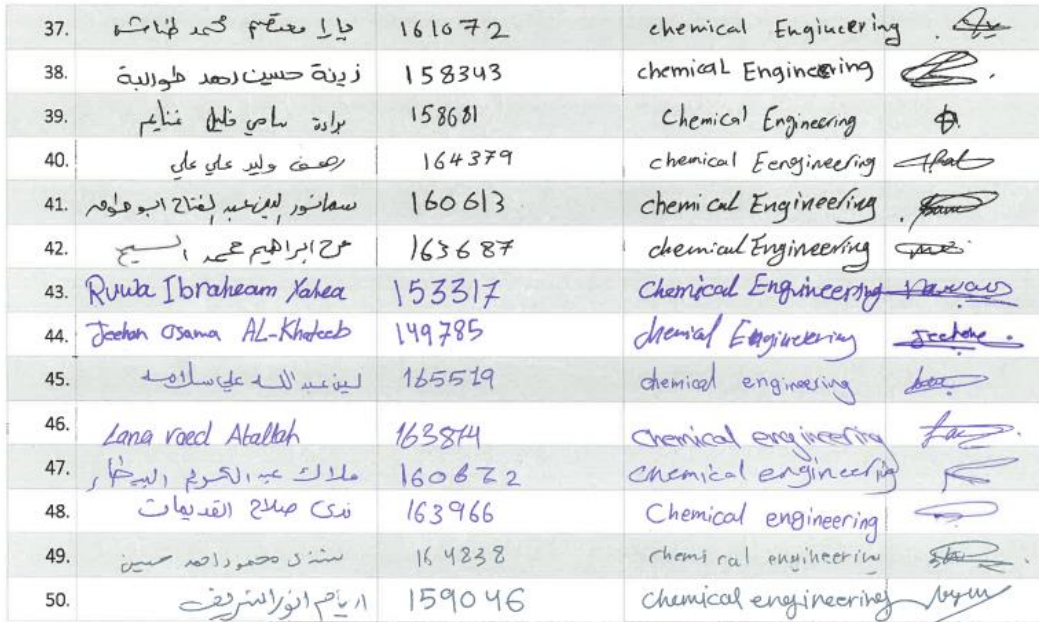 37. يارا معتصم محمد 161072 chemical Engineering
38. زينة حسين احمد طوالبة 158343 chemical Engineering
39. سامي خليل غنايم 158681 Chemical Engineering
40. رهف وليد علي علي 164379 chemical Eengineering
41. عبد الفتاح ابو 160613 chemical Engineering
42. فرح ابراهيم محمد 163687 chemical Engineering
43. Ruwa Ibraheam Yahea 153317 Chemical Engineering
44. Jeehan Osama AL-Khateeb 149785 chemical Engineering Jeehan
45. لين عبد الله علي سلامه 165519 chemical engineering
46. Lana raed Atallah 163874 Chemical engineering
47. ملاك عبد الكريم البيطار 160672 Chemical engineering
48. ندى صلاح القديمات 163966 Chemical engineering
49. شذى محمود احمد حسين 164838 chemical engineering
50. انور الشريف 159046 chemical engineering